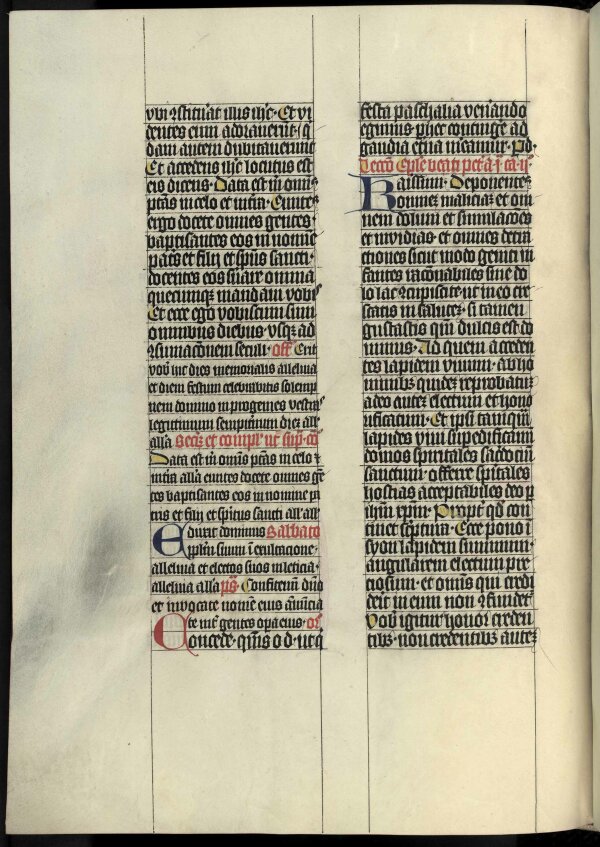 vbi ɔstituat illis ihc. Et vi
dentes eum adorauerūt. q̄
dam autem dubitauerunt
Et accedens ihc locutus est
eis dicens. Data est m̄ omīs
ptās in celo et in tra. Euntes
ergo docete omnes gentes
baptisantes eos in nomine
patris et filij et spūs sancti.
docentes eos suare omnia
quecumq; mandaui vobis
Et ecce ego vobiscum sum
omnibus diebus vsq; ad
ɔsumacōnem seculi. off Erit
vobis hic dies memorialis alleluia
et diem festum celebrabitis solemp
nem domino in progenies vestras
legittimum sempiternum diez all'a
all'a Secr; et compl' ut sup. cō
Data est m̄ omīs ptās in celo et
in tra all'a euntes docete omnes gētes
baptisantes eos in nomine pa
tris et filij et spiritus sancti all' all'
Eduxit dominus Sabbato
pplm suum ī exultacione.
alleluia et electos suos in leticia.
alleluia all'a ps Confitemī dnō
et inuocate nomē eius annūcia
te int gentes opa eius. or
Concede. qs̄ o. d. ut q
festa paschalia venerando
egimus. p hec contingere ad
gaudia etna mereamur. Pd.
Lecco Eple beati pet. a. j. ca. ij.
Karissimi. Deponentes
omnem maliciam et om
nem dolum et simulacōes
et inuidias. et omnes detra
ctiones sicut modo geniti in
fantes racōnabiles sine do
lo lac ɔcupiscite. ut in eo cre
scatis in salutem. si tamen
gustastis qm dulcis est do
minus. Ad quem acceden
tes lapidem viuum. ab ho
minibus quidez reprobatum
a deo autez electum et hono
rificatum. Et ipsi tamquam
lapides viui supedificamini
domos spiritales sacerdociū
sanctum. offerre spiritales
hostias acceptabiles deo p
ihm xpm. Propter qd con
tinet scriptura. Ecce pono ī
syon lapidem summum.
angularem electum pre
ciosum. et omīs qui credi
derit in eum non ɔfundetur
Vobis igitur honor creden
tibus. non credentibus autez